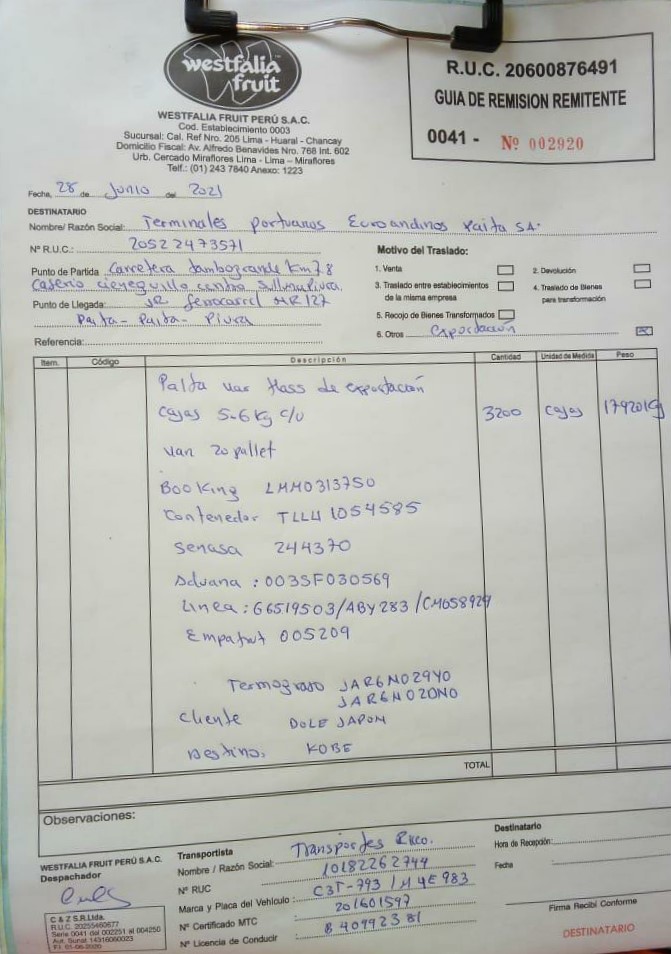 westfalia
fruit
WESTFALIA FRUIT PERÚ S.A.C.
Cod. Establecimiento 0003
Sucursal: Cal. Ref Nro. 205 Lima - Huaral - Chancay
Domicilio Fiscal: Av. Alfredo Benavides Nro. 768 Int. 602
Urb. Cercado Miraflores Lima - Lima – Miraflores
Telf.: (01) 243 7840 Anexo: 1223
R.U.C. 20600876491
GUIA DE REMISION REMITENTE
0041 - Nº 002920
Fecha, 28 de Junio del 2021
DESTINATARIO
Nombre/ Razón Social: Terminales portuarios Euroandinos Paita SA.
Nº R.U.C.: 20522473571
Motivo del Traslado:
Punto de Partida Carretera tambogrande Km 7.8
Caserio cieneguillo centro Sullana Piura.
Punto de Llegada: JR ferrocarril MR 127
Paita - Paita - Piura
Referencia:
1. Venta
2. Devolución
3. Traslado entre establecimientos de la misma empresa
4. Traslado de Bienes para transformación
5. Recojo de Bienes Transformados
6. Otros Exportación
Item. Código Descripción Cantidad Unidad de Medida Peso
Palta var Hass de exportación
Cajas 5.6 Kg c/u 3200 Cajas 17920Kg
Van 20 pallet
Booking LMM0313750
Contenedor TLLU 1054585
Senasa 244370
Aduana : 003SF030569
Linea : G6519503/ABY283/CM058929
005209
Termografo JAR6N029Y0
JAR6N020N0
Cliente DOLE JAPON
Destino, KOBE
TOTAL
Observaciones:
WESTFALIA FRUIT PERÚ S.A.C.
Despachador
C & Z S.R.Ltda.
R.U.C. 20255460677
Serie 0041 del 002251 al 004250
Aut. Sunat 14316060023
F.I. 01-06-2020
Transportista
Nombre / Razón Social: Transportes Rico.
Nº RUC 10182262744
Marca y Placa del Vehículo : C3T-793 / M4E983
Nº Certificado MTC 201601597
Nº Licencia de Conducir B40992381
Destinatario
Hora de Recepción:
Fecha
Firma Recibí Conforme
DESTINATARIO